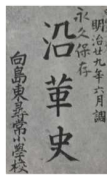 明治廿九年六月調
永久保存
沿革史
向島東尋常小學校